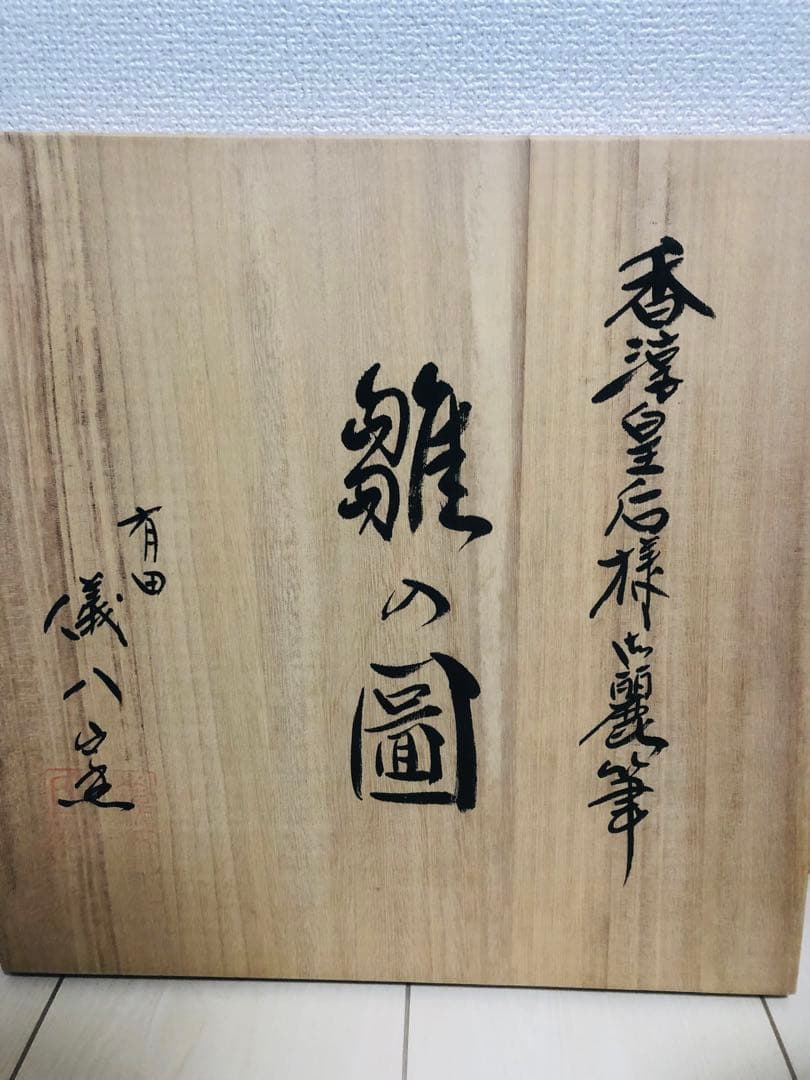 香淳皇后様御麗筆
雛の圖
有田
儀八窯